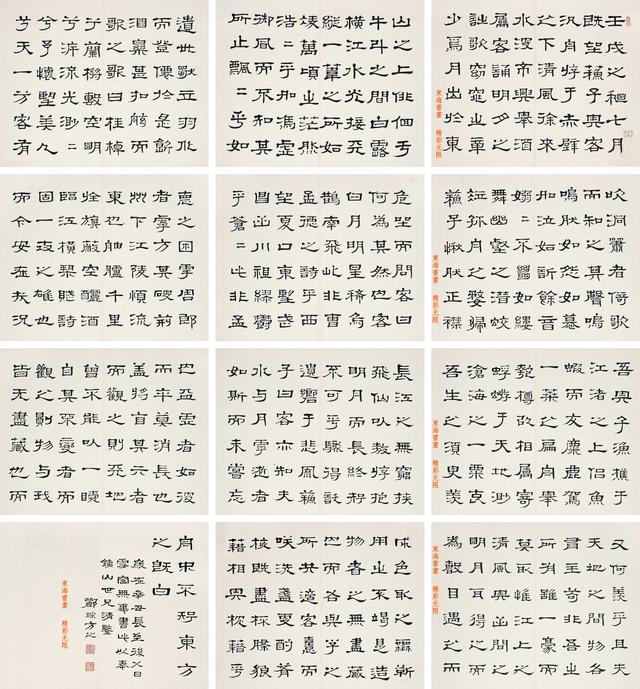 壬戌之秋七月
既望蘇子與客
汎舟游于赤壁
之下清風徐來
水波不興舉酒
屬客誦明月之
詩歌窈窕之章
少焉月出於東
山之上徘徊于
牛斗之間白露
橫江水光接天
縱一葦之所如
凌萬頃之茫然
浩二乎如馮虛
御風而不知其
所止飄二乎如
遺世獨立羽化
而登僊於是飲
酒樂甚扣舷而
歌之歌曰桂棹
兮蘭槳擊空明
兮泝流光渺二
兮予懷望美人
兮天一方客有
吹洞簫者倚歌
而和之其聲嗚
嗚然如怨如慕
如泣如訴餘音
嫋二不絕如縷
舞幽壑之潛蛟
泣孤舟之嫠婦
蘇子愀然正襟
危坐而問客曰
何為其然也客
曰月明星稀烏
鵲南飛此非曹
孟德之詩乎西
望夏口東望武
昌山川相繆鬱
乎蒼二此非孟
德之困于周郎
者乎方其破荊
州下江陵順流
東也舳艫千里
旌旗蔽空釃酒
臨江橫槊賦詩
固一世之雄也
而今安在哉況
吾與子漁樵于
江渚之上侶魚
蝦而友麋鹿駕
一葉之扁舟舉
匏樽以相屬寄
蜉蝣于天地渺
滄海之一粟哀
吾生之須臾羨
長江之無窮挾
飛仙以敖游抱
明月而長終知
不可乎驟得託
遺響于悲風蘇
子曰客亦知夫
水与月乎逝者
如斯而未嘗往
也盈虛者如彼
而卒莫消長也
蓋將自其變者
而觀之則天地
曾不能以一瞬
自其不變者而
觀之則物与我
皆無盡藏也而
又何羨乎且夫
天地之間物各
有主苟非吾之
所有雖一豪而
莫取惟江上之
清風與山間之
明月耳得之而
為聲目遇之而
成色取之無禁
用之不竭是造
物者之無盡藏
也而吾與子之
所共適客喜而
笑洗盞更酌肴
核既盡杯盤狼
藉相與枕藉乎
舟中不知東方
之既白
歲在辛丑長至後八日
雪窗無事書此以奉
鏡山世兄清鑒
東海書畫 精彩无限
東海書畫 精彩无限
東海書畫 精彩无限
東海書畫 精彩无限
東海書畫 精彩无限